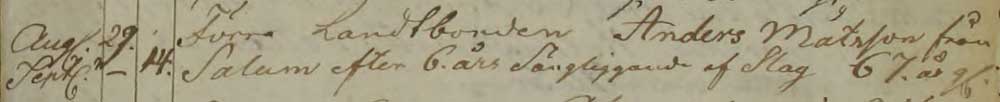 Aug. 29. Förra Landtbonden Anders Måtsson från
Sept. — 14. Salum efter 6. års Sängliggande af Slag 67. år gl.